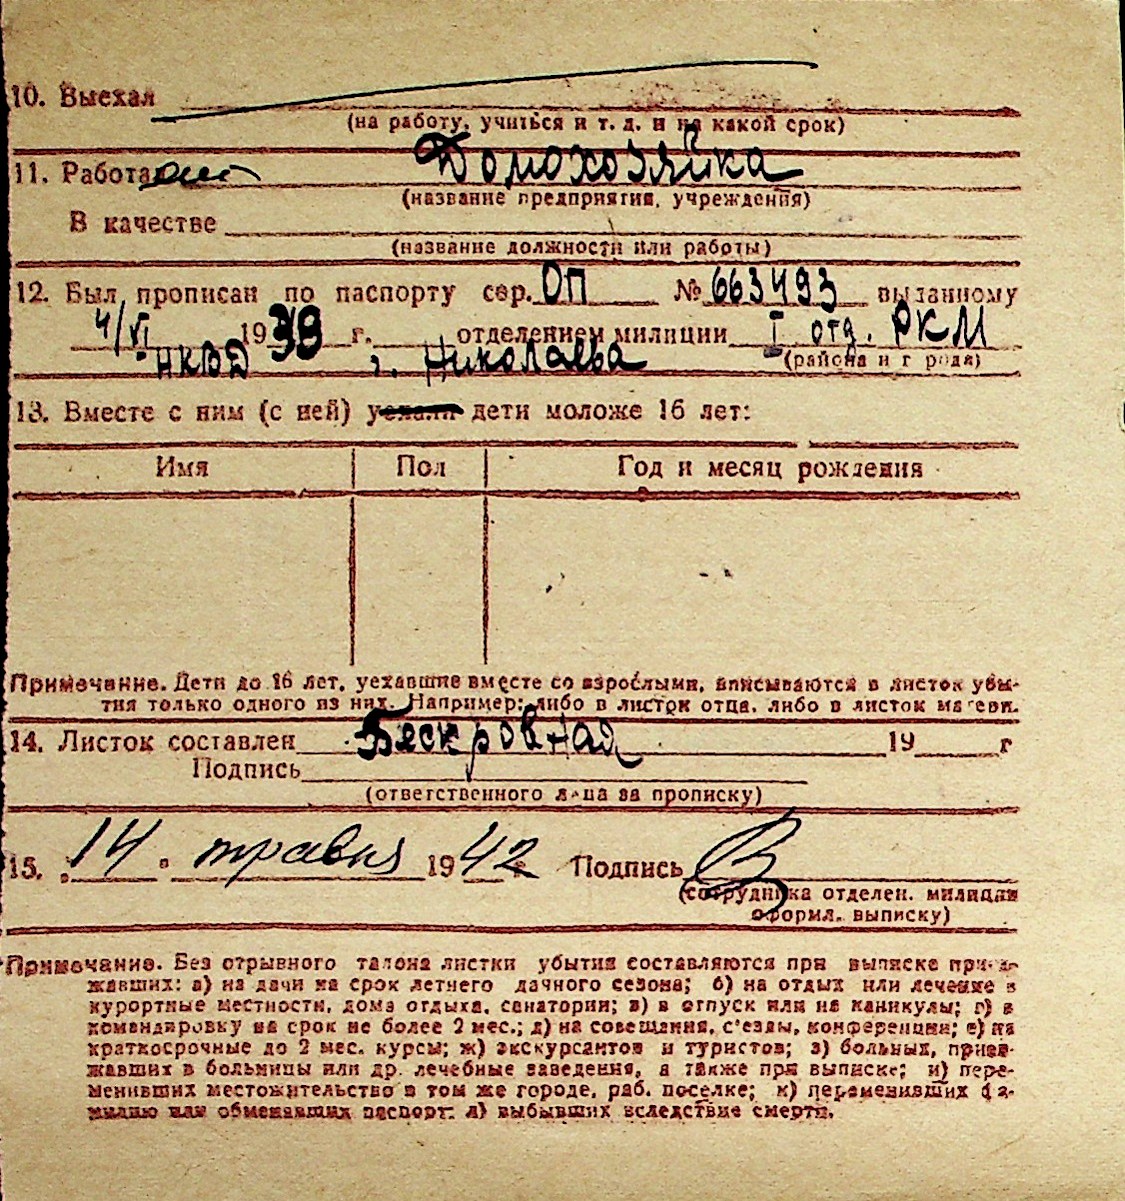 10. Выехал
(на работу, учиться и т. д. и на какой срок)
11. Работает Домохозяйка
(название предприятия, учреждения)
В качестве
(название должности или работы)
12. Был прописан по паспорту сер. ОП № 663493 выданному
4/VI 1938 г. отделением милиции I отд. РКМ
(района и города)
НКВД г. Николаева
13. Вместе с ним (с ней) уехали дети моложе 16 лет:
Имя Пол Год и месяц рождения
Примечание. Дети до 16 лет, уехавшие вместе со взрослыми, вписываются в листок убы-
тия только одного из них. Например: либо в листок отца, либо в листок матери.
14. Листок составлен Бескровная 19 г
Подпись
(ответственного лица за прописку)
15. „14" травня 1942 г. Подпись
(сотрудника отделен. милиции
оформл. выписку)
Примечание. Без отрывного талона листки убытия составляются при выписке приез-
жавших: а) на дачи на срок летнего дачного сезона; б) на отдых или лечение в
курортные местности, дома отдыха, санатории; в) в отпуск или на каникулы; г) в
командировку на срок не более 2 мес.; д) на совещания, с'езды, конференции; е) на
краткосрочные до 2 мес. курсы; ж) экскурсантов и туристов; з) больных, приез-
жавших в больницы или др. лечебные заведения, а также при выписке; и) пере-
менивших местожительство в том же городе, раб. поселке; к) переменивших фа-
милию или обменявших паспорт; л) выбывших вследствие смерти.